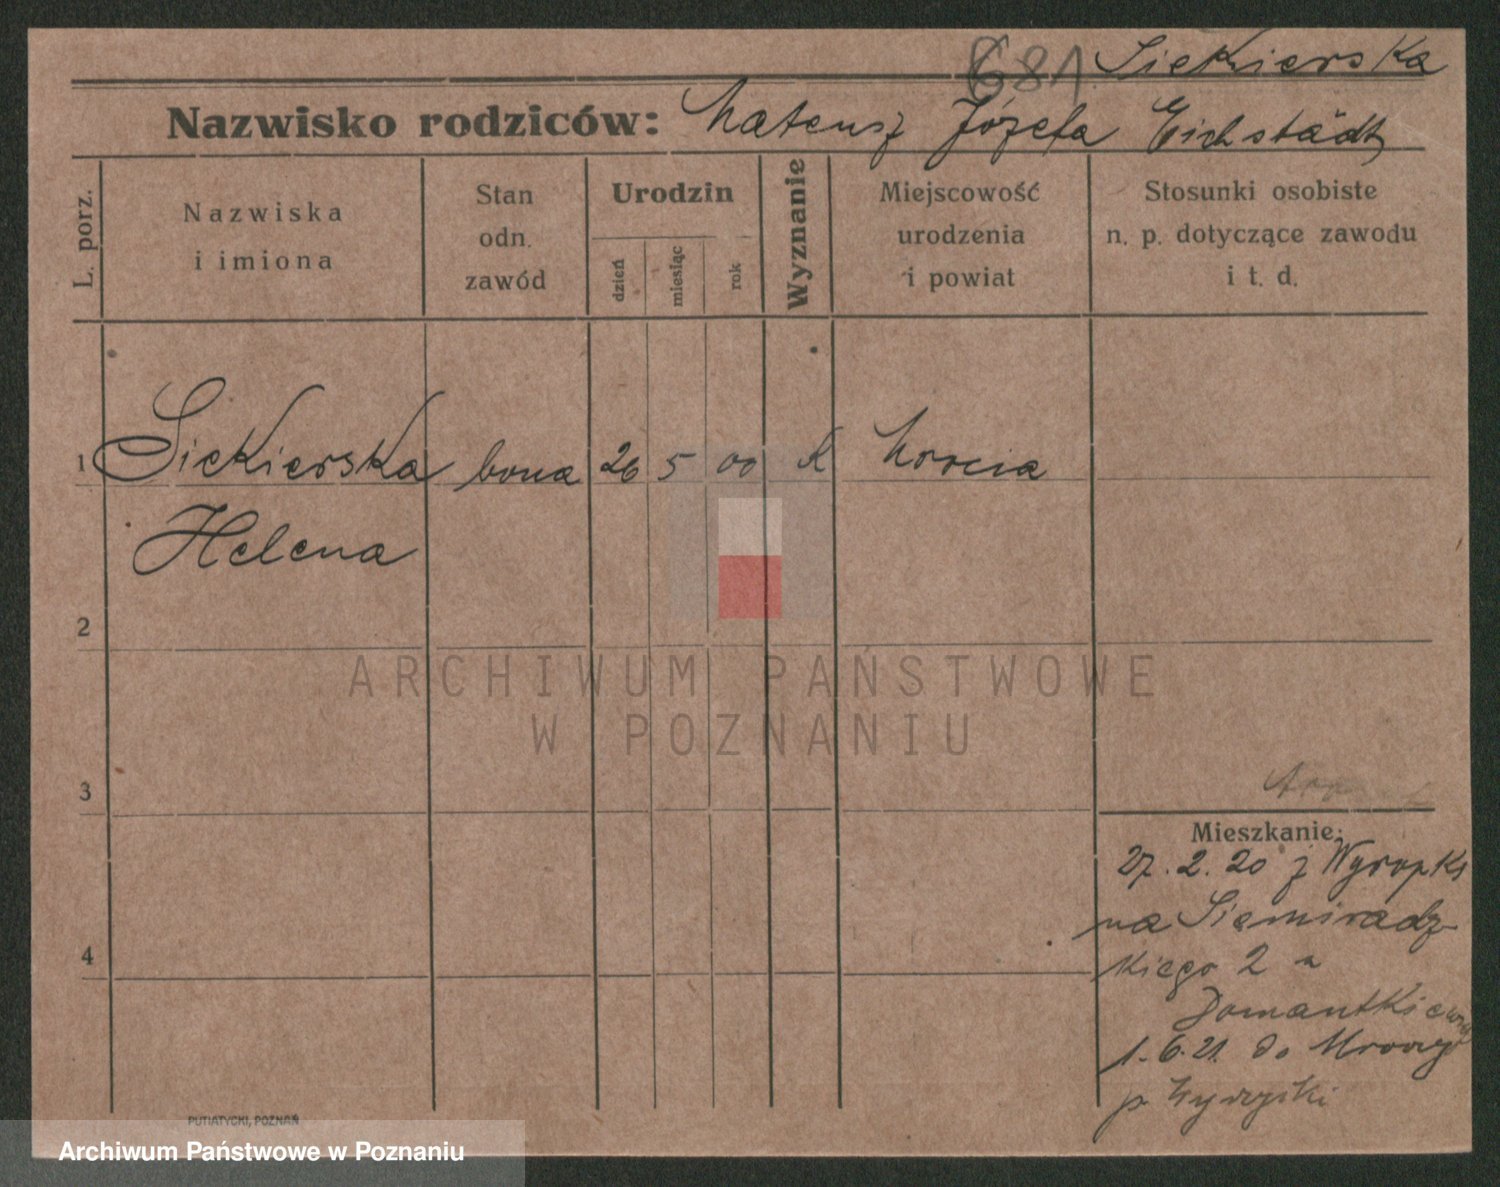 681. Siekierska
Nazwisko rodziców: Mateusz Józefa Eichstädt
L. porz.
Nazwiska
i imiona
Stan
odn.
zawód
Urodzin
dzień
miesiąc
rok
Wyznanie
Miejscowość
urodzenia
i powiat
Stosunki osobiste
n. p. dotyczące zawodu
i t. d.
1 Siekierska bona 26 5 00 K Mrocza
Helena
2
ARCHIWUM PAŃSTWOWE
W POZNANIU
3
Mieszkanie:
27. 2. 20 z
na Siemiradz-
kiego 2 u
4
1. 6. 21. do
p. Wyrzyski
PUTIATYCKI, POZNAŃ
Archiwum Państwowe w Poznaniu